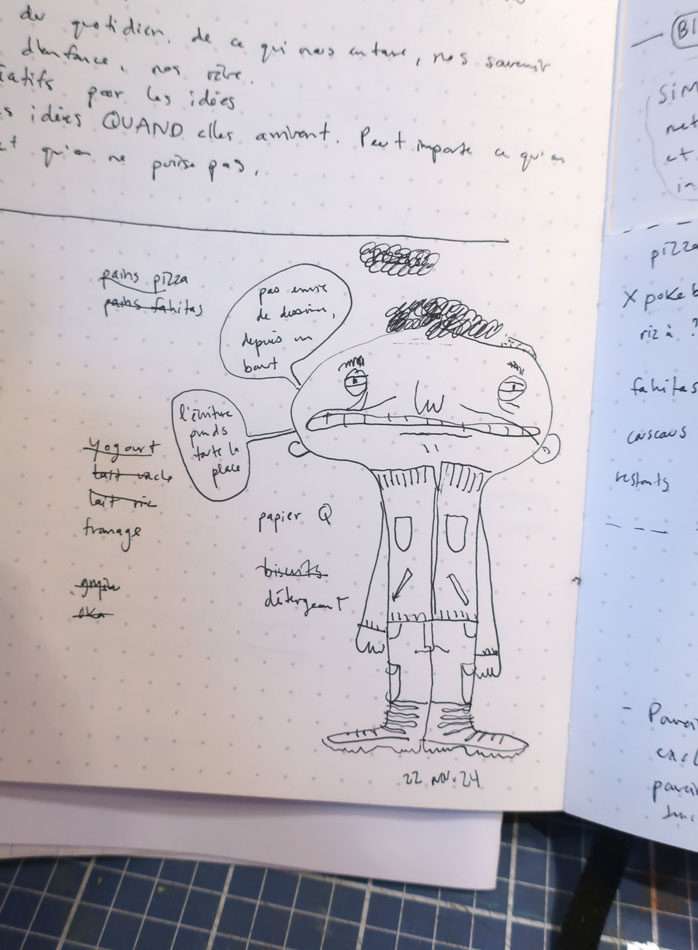 du quotidien, de ce qui nous entoure, nos souvenir
d'enfance, nos rêve.
pour les idées
idées QUAND elles arrivent. Peut importe ce qu'on
qu'on ne puisse pas.
pains pizza
pains fahitas
pas envie
de dessiner,
depuis un
bout
l'écriture
prends
toute la
place
yogourt
lait vache
lait riz
fromage
oka
papier Q
biscuits
détergeant
22 nov. 24
BI
SIM
net
et
in
pizza
X poke b
riz à ?
fahitas
couscous
restants